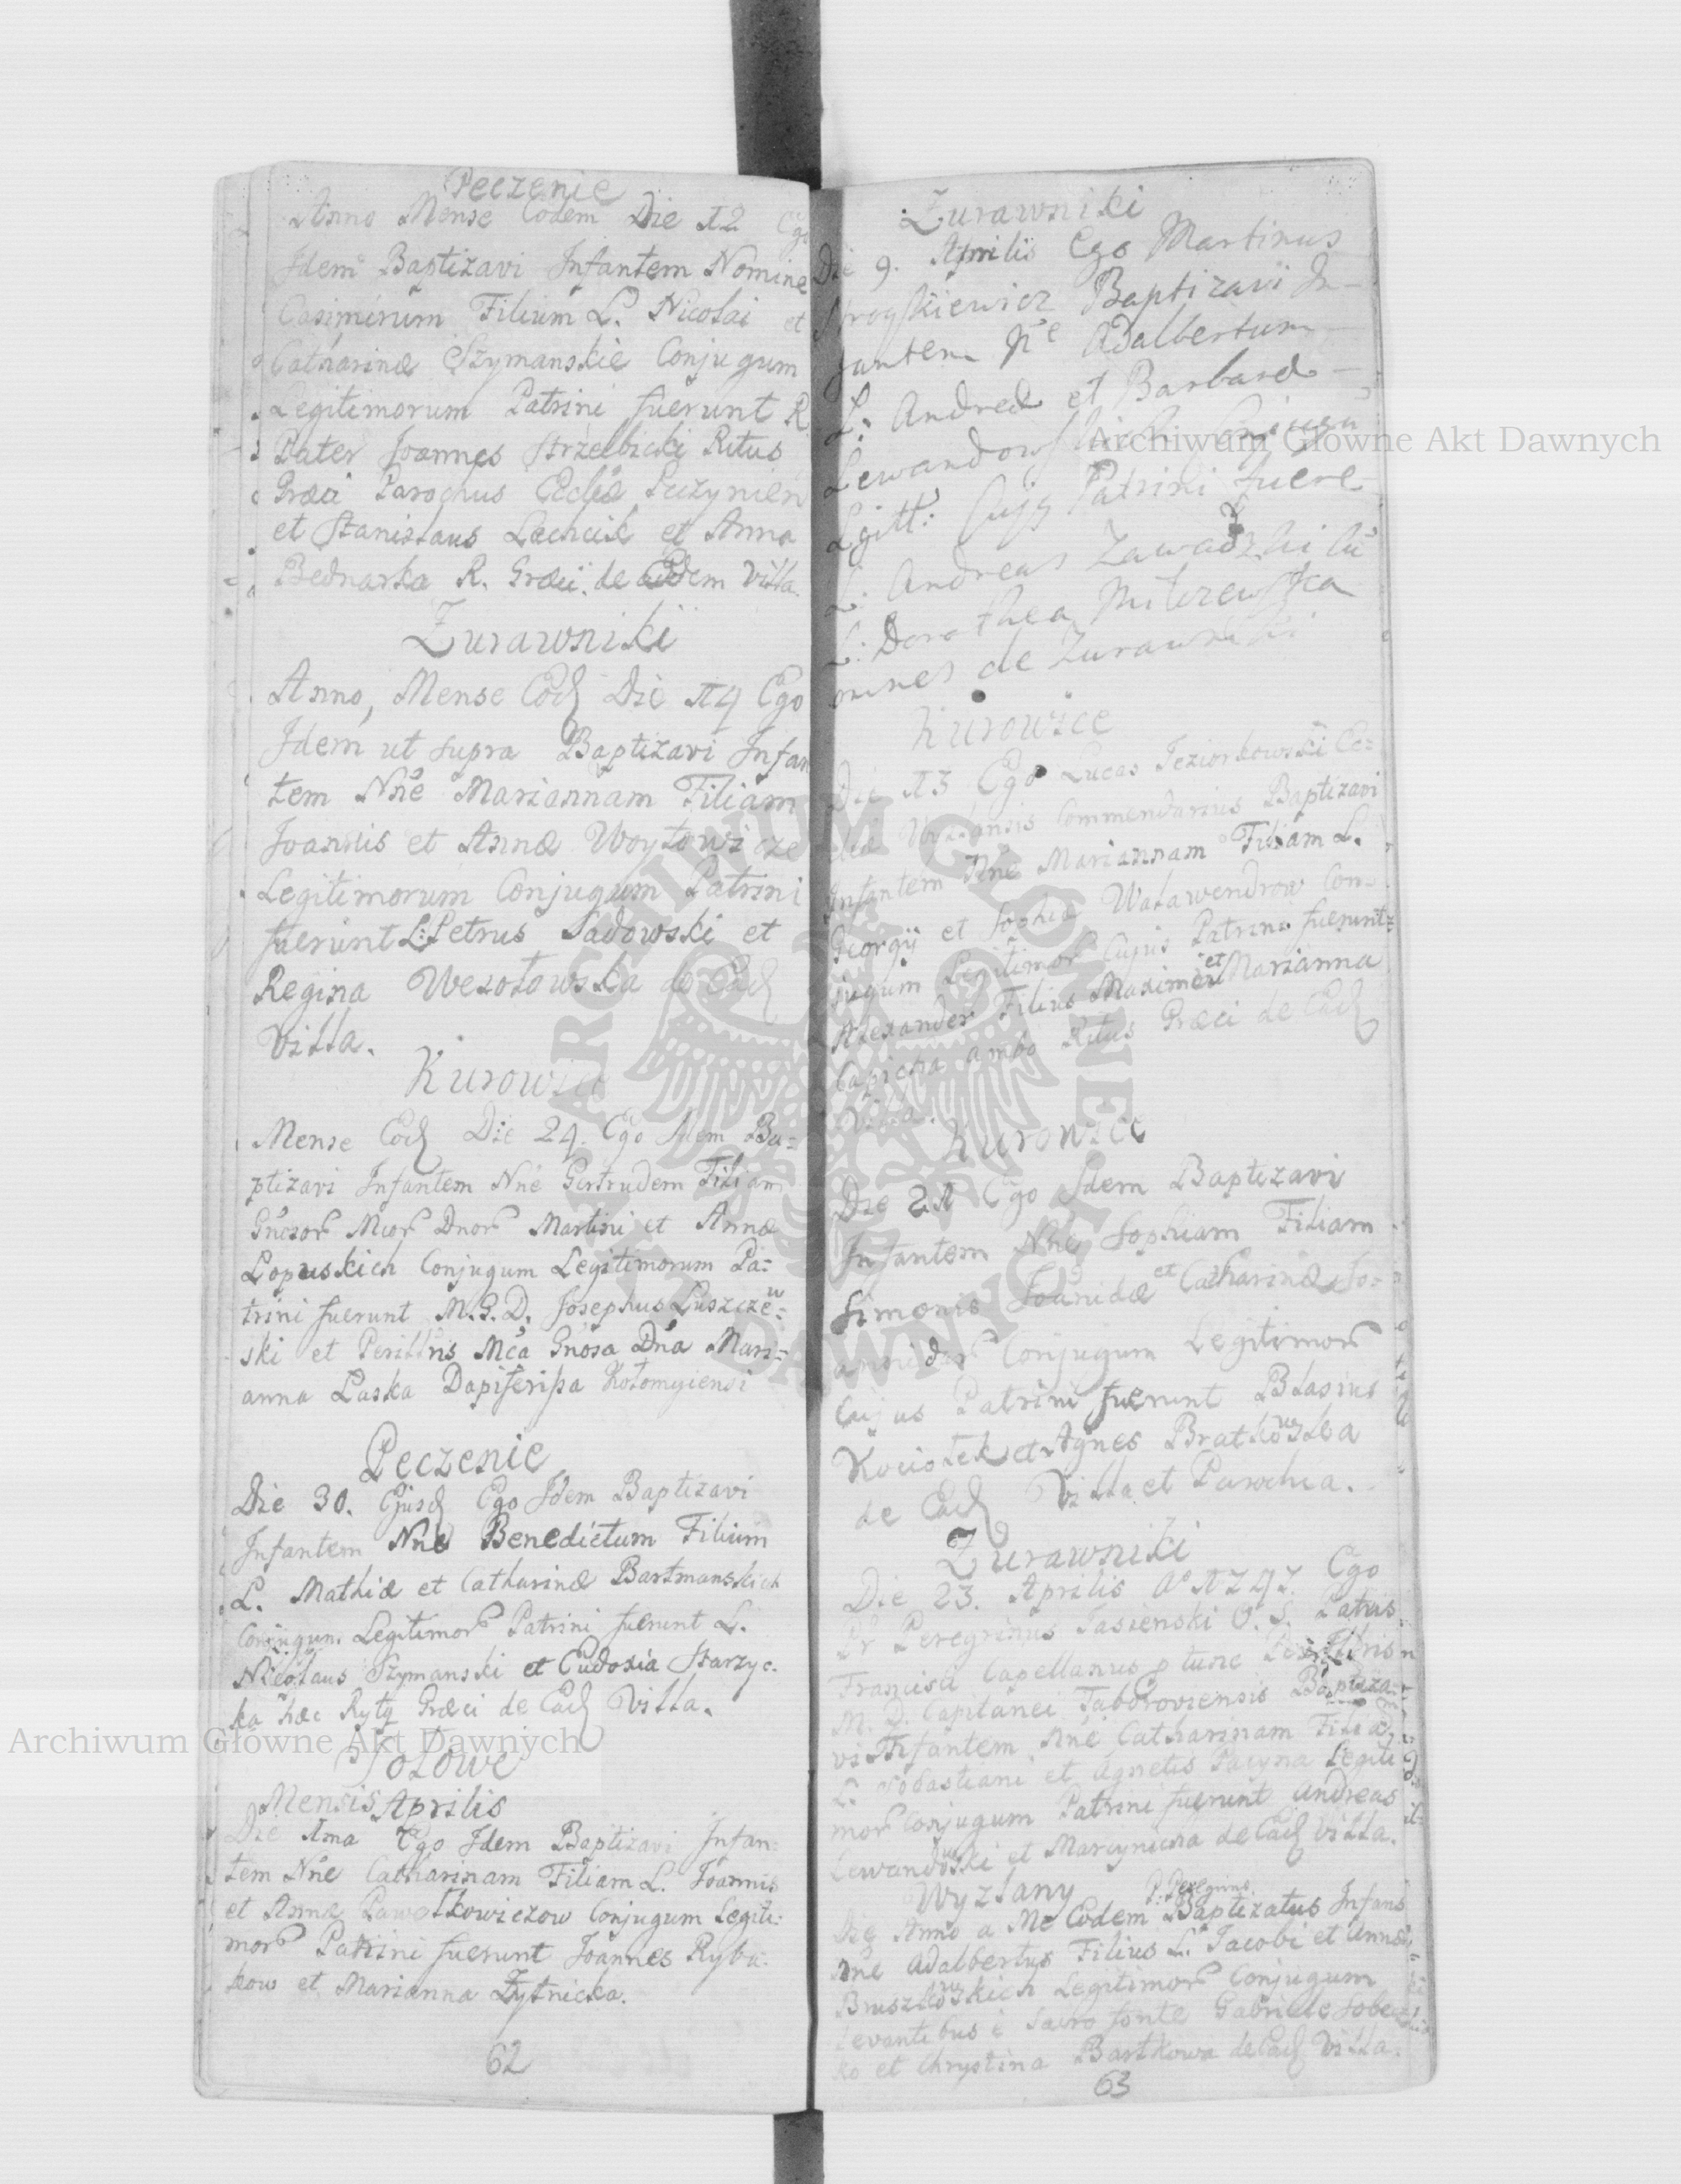 Peczenie
Anno Mense Eodem Die 12 Ego
Idem Baptizavi Infantem Nomine
Casimirum Filium L. Nicolai et
Catharinæ Szymanskie Conjugum
Legitimorum Patrini fuerunt R.
Pater Joannes Strzelbicki Ritus
Græci Parochus Ecclæ
et Stanislaus et Anna
Bednarka R. Græci de eadem Villa.
Zurawniki
Anno, Mense Eod Die 14 Ego
Idem ut supra Baptizavi Infan
tem Nñe Mariannam Filiam
Joannis et Annæ Woytowicze
Legitimorum Conjugum Patrini
fuerunt L: Petrus Sadowski et
Regina Wesołowska de Ead
Villa.
Kurowice
Mense Eod Die 24. Ego Idem Ba=
ptizavi Infantem Nñe Gertrudem Filiam
Gñesor Mcor Dnor Martini et Annæ
Lopuskich Conjugum Legitimorum Pa=
trini fuerunt M.G.D. Josephus Luszczew=
ski et Perillris Mca Gnosa Dna Mari=
anna Laska Dapiferissa Kołomyiensi
Peczenie
Die 30. Ejusd Ego Idem Baptizavi
Infantem Nne Benedictum Filium
L. Mathiæ et Catharinæ Bartmanskich
Conjugum Legitimor Patrini fuerunt L.
Nicolaus Szymanski et Eudosia Starzyc.
ka hæc Græci de Ead Villa.
Sołowe
Mensis Aprilis
Die 1ma Ego Idem Baptizavi Infan=
tem Nñe Catharinam Filiam L. Joannis
et Annæ Pawełkowiczow Conjugum Legiti=
mor Patrini fuerunt Joannes Ryba=
kow et Marianna Zytnicka.
62
Zurawniki
Die 9. Aprilis Ego Martinus
Baptizavi In-
fantem Adalbertum
L: Andreæ et Barbaræ
Legitt: Patrini fuere
L: Andreas Zawadzki
L: Dorothea
omnes de Zurawniki
Kurowice
Die 13 Ego Lucas Jeziorkowski Ec=
clæ Commendarius Baptizavi
Infantem Nñe Mariannam Filiam L.
Georgij et Sophiæ Watawendrow Con=
jugum Legitimor Cujus Patrini fuerunt
Alexander Filius et Marianna
ambo Ritus Græci de Ead
Villa.
Kurowice
Die 21 Ego Idem Baptizavi
Infantem Nñe Sophiam Filiam
Simonis et Catharinæ
Conjugum Legitimor
Cujus Patrini fuerunt Blasius
Kociołek et Agnes Bratkowska
de Ead Villa et Parochia.
Zurawniki
Die 23. Aprilis Aº 1747. Ego
Pr Peregrinus Jasienski O. S. Patris
Francisci Capellanus p tunc Perillris
M. D. Capitanei Taboroviensis Baptiza=
vi Infantem Nñe Catharinam Filiam
L. Sobastiani et Agnetis Pacyna Legiti
mor Conjugum Patrini fuerunt Andreas
Lewandowski et de Ead Villa.
Wyzlany
P. Peregrino
Die Anno a Me Eodem Baptizatus Infans
Nñe Adalbertus Filius L. Jacobi et Annæ
Bruszkowskich Legitimor Conjugum
Levantibus e Sacro fonte Gabriele
et Chrystina Bartkowa de Ead Villa.
63
Archiwum Główne Akt Dawnych
Archiwum Główne Akt Dawnych
ARCHIWUM GŁÓWNE AKT DAWNYCH